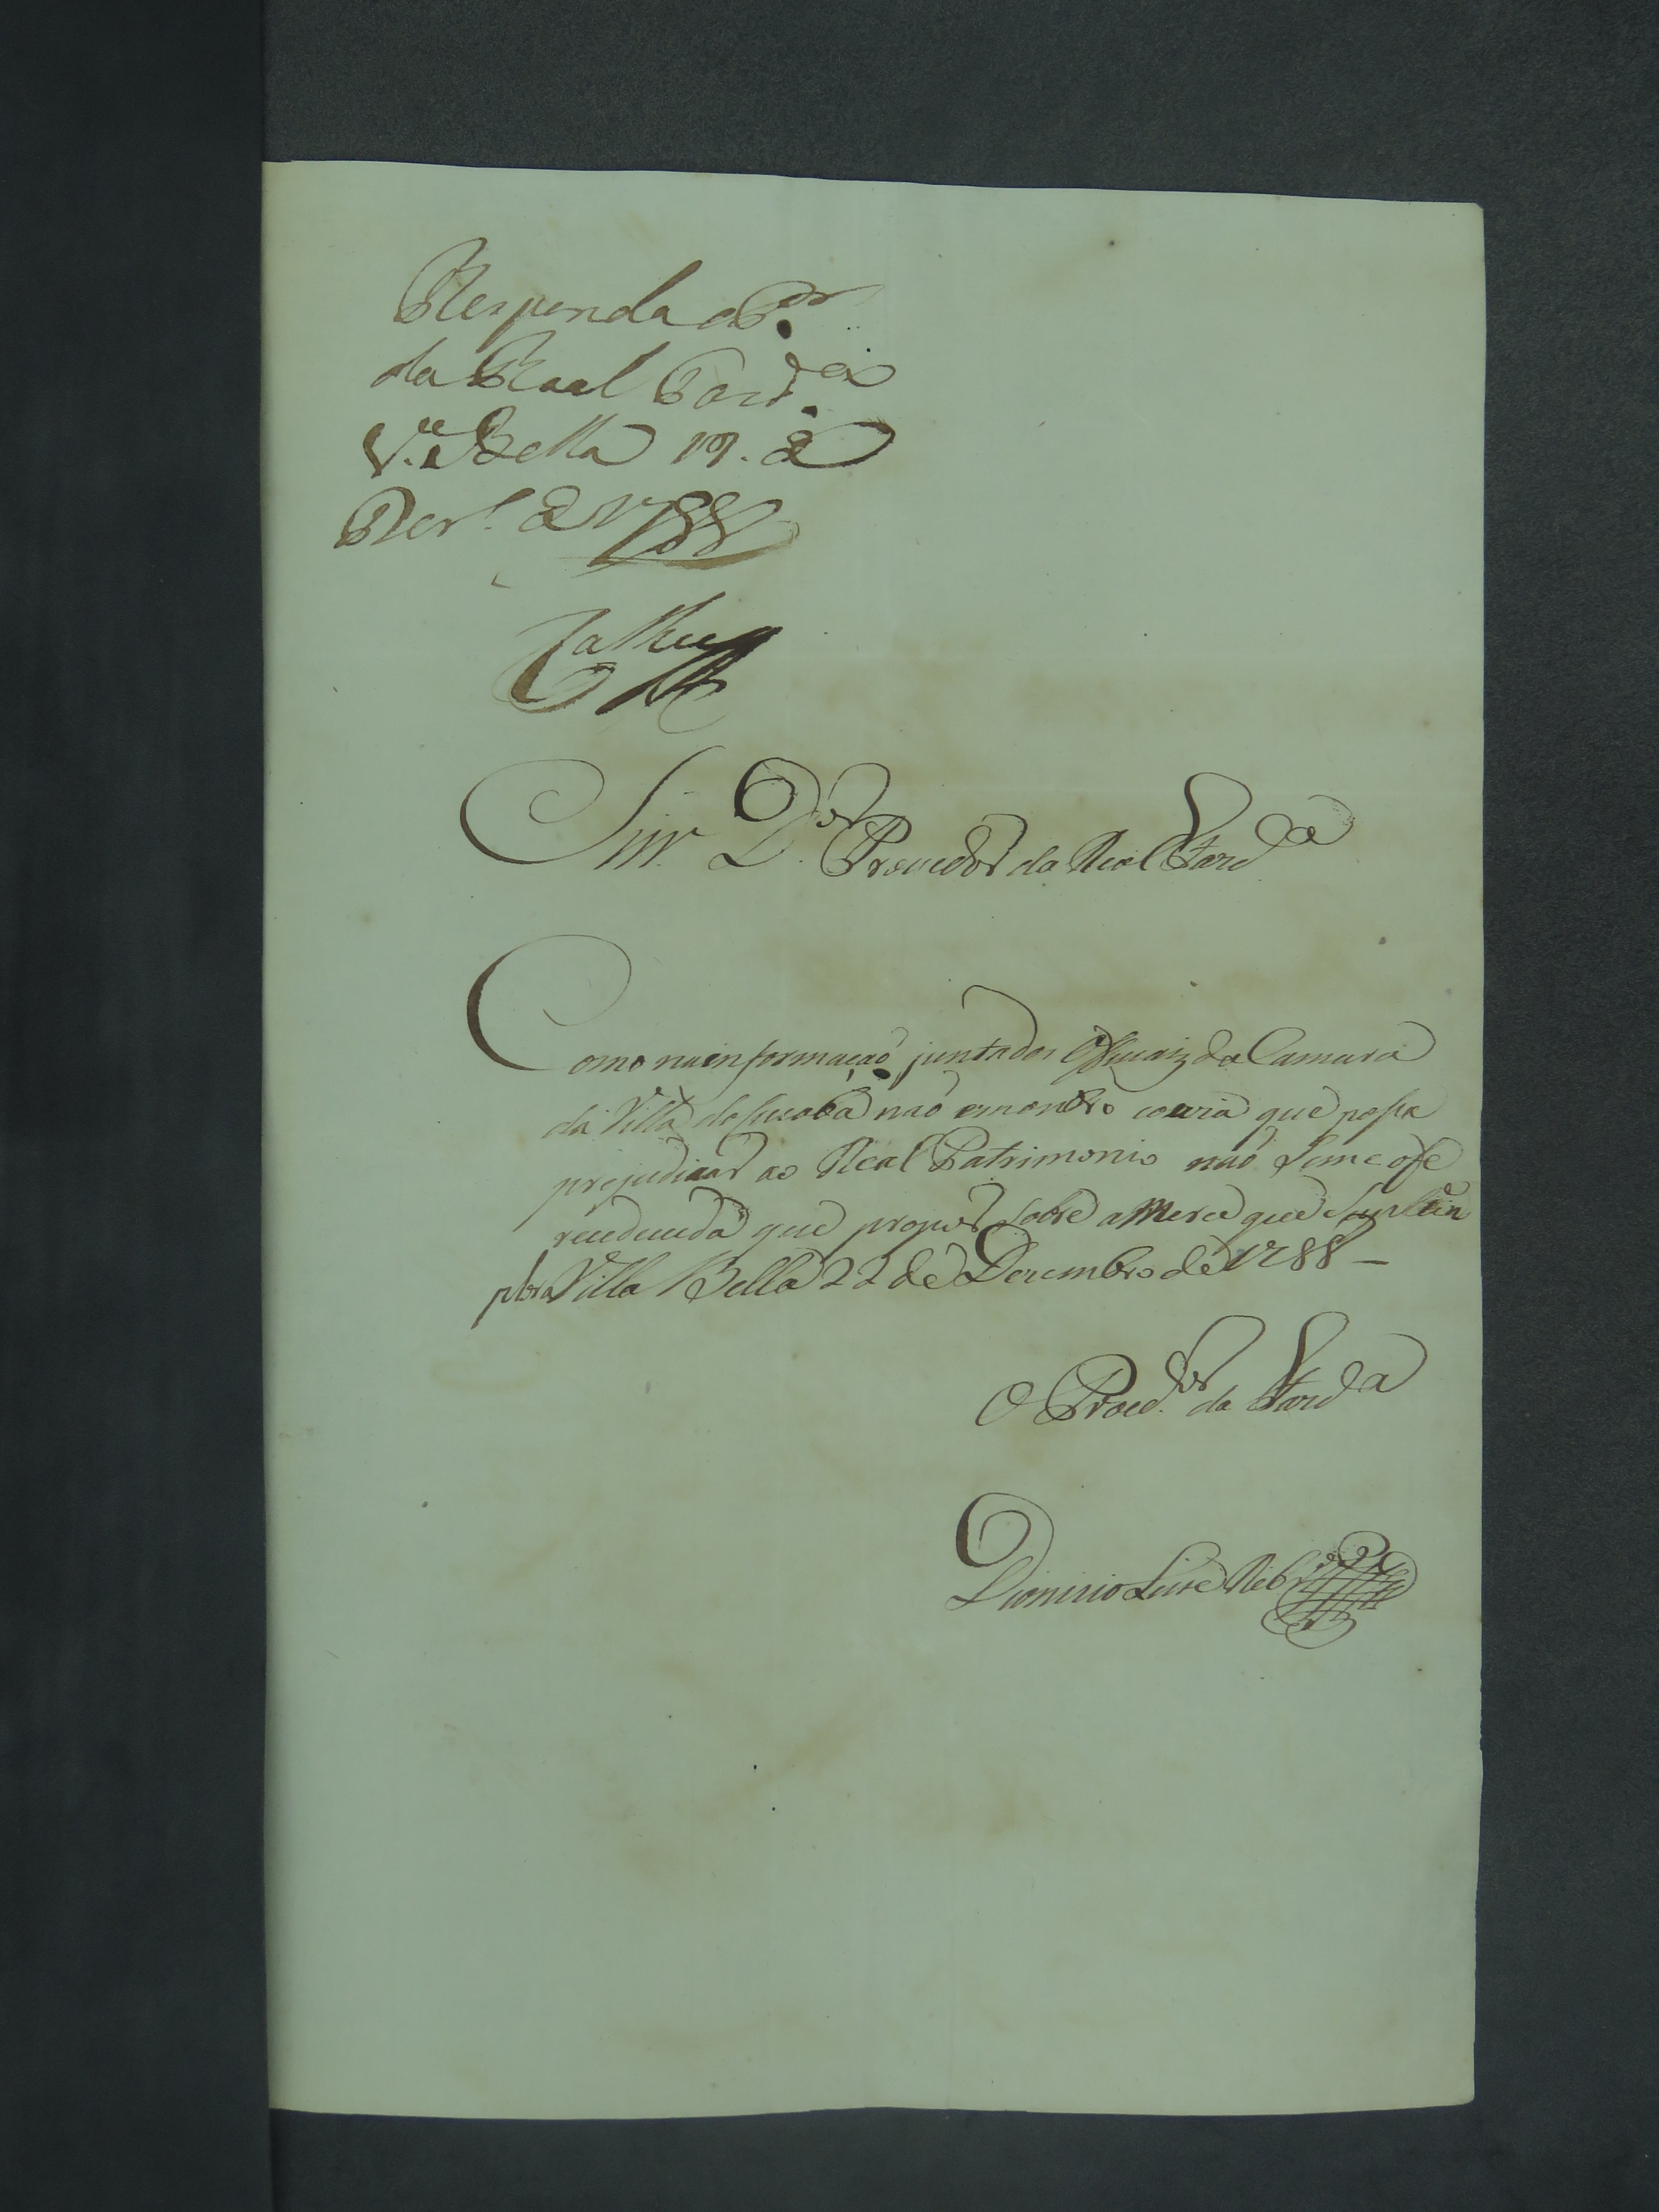 Responda o P.or
da Real Fazd.a
V.a Bella 19. de
Dezr.o de 1788
Snr. D.or Provedor da Real Fazd.a
Como na informação junta dos Officiaiz da Camara
da Villa do Cuiabá não encontro couza que possa
prejudicar ao Real Patrimonio não Se me ofe
rece duvida que propor Sobre a Merce que o Supl.e im
plora Villa Bella 22 de Dezembro de 1788 —
O Proc.dor da Fazd.a
Dionizio Luis Ribr.o